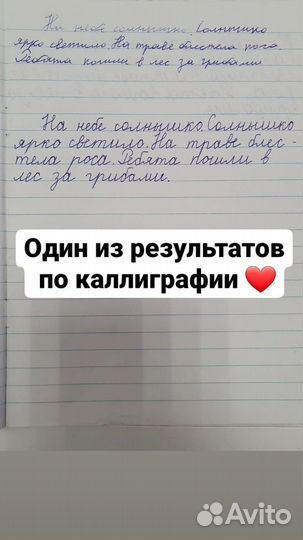 На небе солнышко. Солнышко
ярко светило. На траве блестела роса.
Ребята пошли в лес за грибами
На небе солнышко. Солнышко
ярко светило. На траве блес-
тела роса. Ребята пошли в
лес за грибами.
Один из результатов
по каллиграфии ❤️
Avito